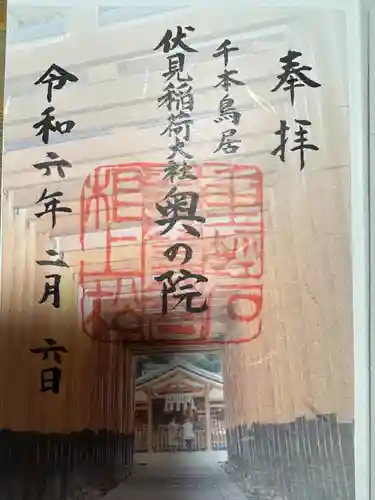 奉拝
千本鳥居
伏見稲荷大社
奥の院
令和六年二月六日